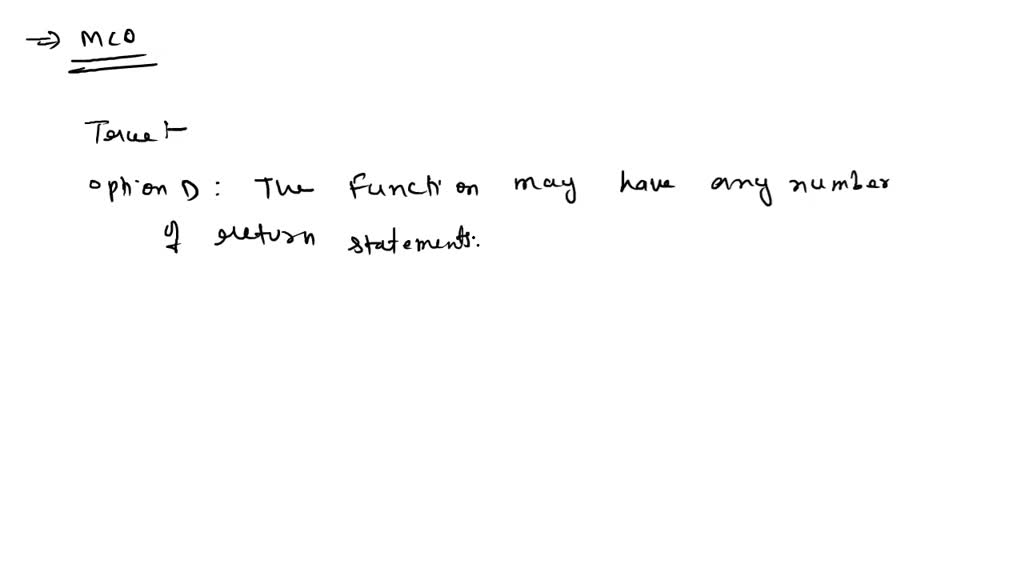 ⇒ MCO
True
option D : The function may have any number
of return statements.